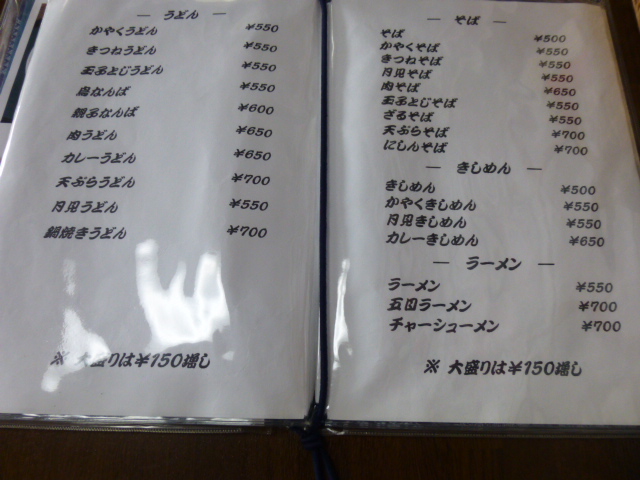 ― うどん ―
かやくうどん ¥550
きつねうどん ¥550
玉子とじうどん ¥550
鳥なんば ¥550
親子なんば ¥600
肉うどん ¥650
カレーうどん ¥650
天ぷらうどん ¥700
月見うどん ¥550
鍋焼きうどん ¥700
※ 大盛りは¥150増し
― そば ―
そば ¥500
かやくそば ¥550
きつねそば ¥550
月見そば ¥550
肉そば ¥650
玉子とじそば ¥550
ざるそば ¥550
天ぷらそば ¥700
にしんそば ¥700
― きしめん ―
きしめん ¥500
かやくきしめん ¥550
月見きしめん ¥550
カレーきしめん ¥650
― ラーメン ―
ラーメン ¥550
五目ラーメン ¥700
チャーシューメン ¥700
※ 大盛りは¥150増し